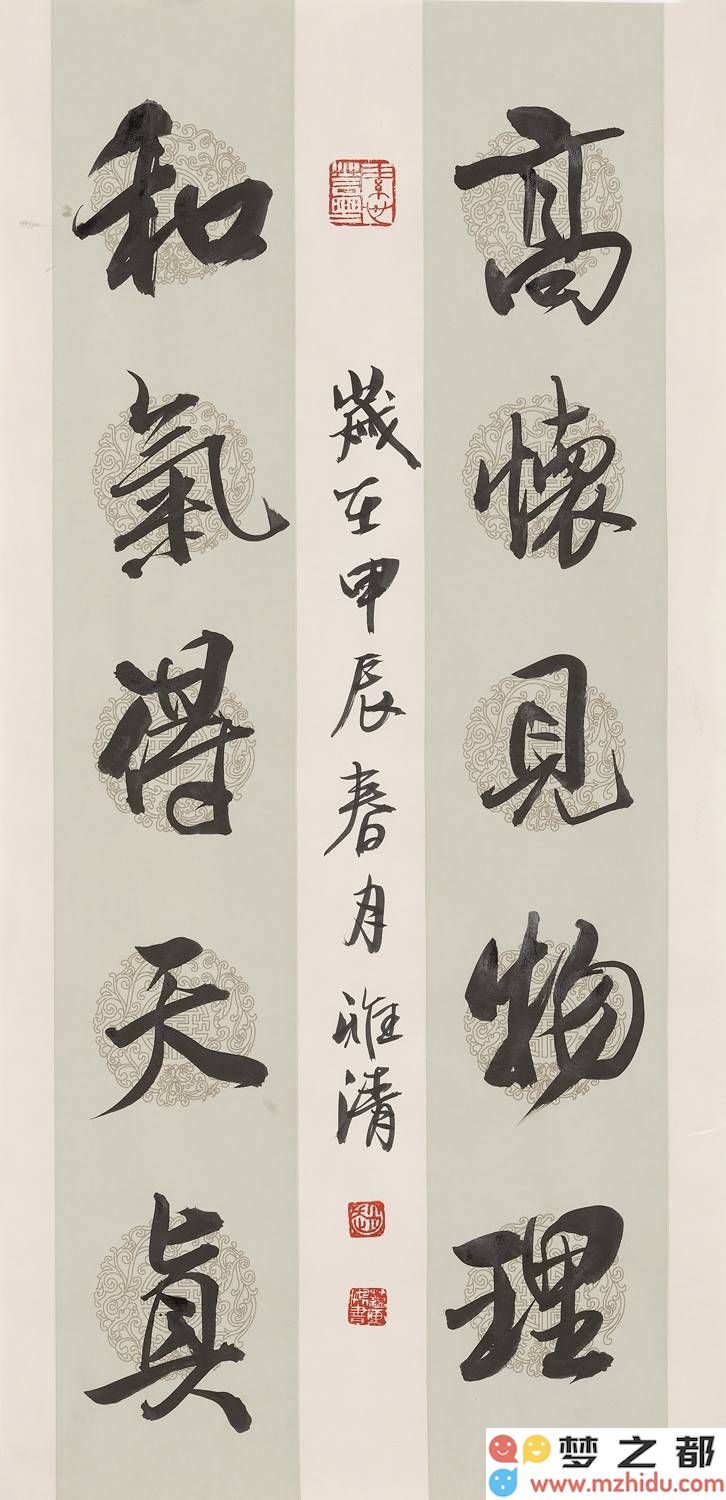 高懷見物理
歲在甲辰春月雅清
和氣得天真
梦之都
www.mzhidu.com